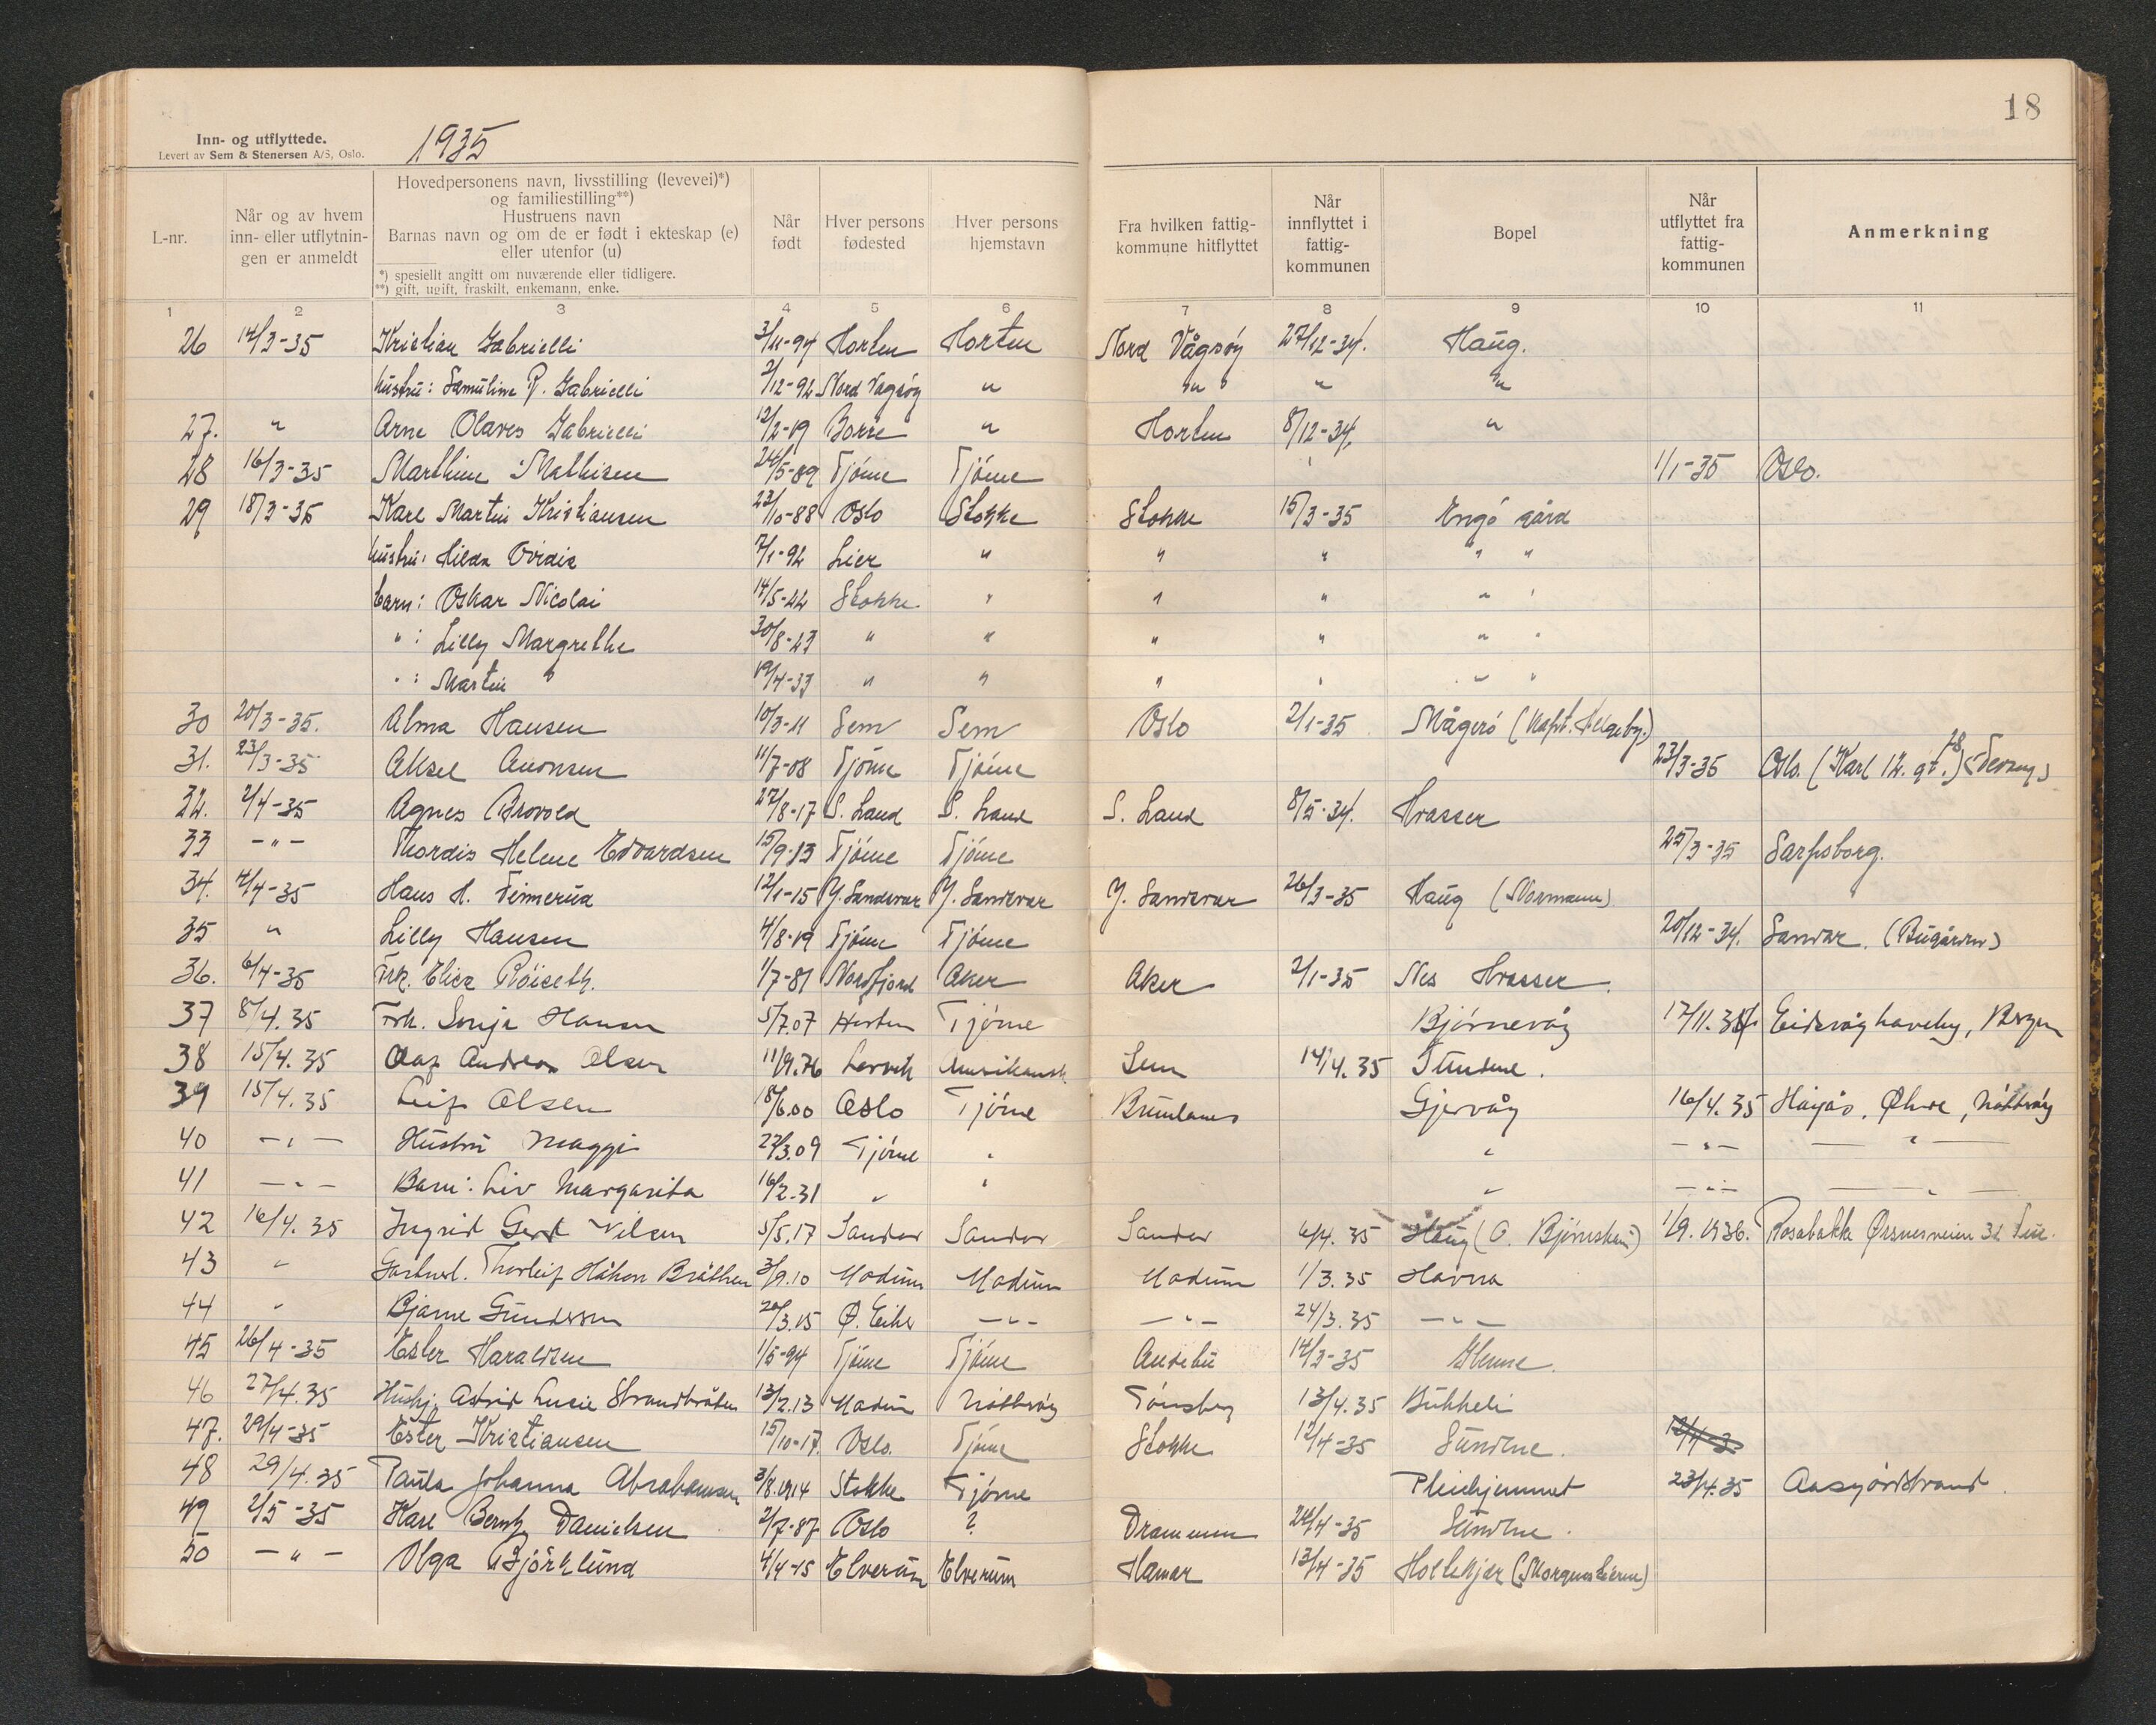 18
Inn- og utflyttede.
Levert av Sem & Stenersen A/S, Oslo.
1935
L-nr.
Når og av hvem inn- eller utflytnin- gen er anmeldt
Hovedpersonens navn, livsstilling (levevei)*)
og familiestilling**)
Hustruens navn
Barnas navn og om de er født i ekteskap (e)
eller utenfor (u)
*) spesiellt angitt om nuværende eller tidligere.
**) gift, ugift, fraskilt, enkemann, enke.
Når født
Hver persons fødested
Hver persons hjemstavn
Fra hvilken fattig- kommune hitflyttet
Når innflyttet i fattig- kommunen
Bopel
Når utflyttet fra fattig- kommunen
Anmerkning
1 2 3 4 5 6 7 8 9 10 11
26 14/3-35 Kristian Gabrielli 3/11-94 Horten Horten Nord Vågsøy 27/12-34. Haug.
Hustru: Samuline P. Gabrielli 2/12-92 Nord Vagsøy " " " " "
27. " Arne Olaves Gabrielli 12/2-19 Borre " Horten 8/12-34, "
28 16/3-35 Marthine Mathisen 24/5-89 Tjöme Tjöme 1/1-35 Oslo.
29 18/3-35 Karl Martin Kristiansen 23/10-88 Oslo Stokke Stokke 15/3-35 Engö gård
Hustru: Hilda Ovidia 7/1-92 Lier " " " " "
barn: Oskar Nicolai 14/5-22 Stokke " " " " "
" : Lilly Margrethe 30/8-23 " " " " " "
" : Martin 19/4-33 " " " " " "
30 20/3-35. Alma Hansen 10/3-11 Sem Sem Oslo 2/1-35 Mågerö (Kapt. Melgeby.)
31. 23/3-35 Aksel Aronsen 11/7-08 Tjöme Tjöme 23/3-35 Oslo. (Karl 12. gt. 18)
32. 2/4-35 Agnes Brovold 27/8-17 S. Land S. Land S. Land 8/5-34. Hvasser
33 - " - Thordis Helene Edvardsen 15/9-13 Tjöme Tjöme 25/3-35 Sarpsborg.
34. 4/4-35 Hans H. Teimerud 12/1-15 Y. Sandsvær Y. Sandsvær Y. Sandsvær 26/3-35 Haug (Normann)
35 " Lilly Hansen 4/8-19 Tjöme Tjöme 20/12-34. Sandar. (Bugården)
36. 6/4-35 Frk. Elisa Röiseth. 1/7-81 Nordfjord Aker Aker 2/1-35 Nes Hvasser.
37 8/4.35 Frk. Sonja Hansen 5/7.07 Horten Tjöme Bjørnevåg 17/11.34 Eidsvåg haveby, Bergen
38 15/4.35 Olaf Andreas Olsen 11/9.76 Larvik Amerikansk. Sem 14/4.35 Sundene.
39 15/4.35 Leif Olsen 18/6.00 Oslo Tjöme Brunlanes Gjervåg 16/4.35 Håøjås, Økre, Nötterøy
40 - " - Hustru Maggi 22/3.09 Tjöme " " - " - - " -
41 - " - Barn: Liv Margarita 16/2-31 " " " - " - - " -
42 16/4.35 Ingrid Gerd Nilsen 5/5.17 Sandar Sandar Sandar 6/4.35 Haug (O. Bjørnskau) 1/9.1936. Rosabakk Ørsnesveien 32 Teie.
43 " Gartnerl. Thorleif Håkon Bråthen 3/9.10 Modum Modum Modum 1/3.35 Havna
44 " Bjarne Gundersen 20/3.15 Ø. Eiker - " - - " - 24/3.35 - " -
45 26/4-35 Ester Haraldsen 1/5-94 Tjöme Tjöme Andebu 14/3-35 Glenne.
46 27/4.35 Hushj. Astrid Lucie Strandbråten 13/2.13 Modum Nøtterøy Tønsberg 13/4.35 Bukkeli
47. 29/4-35 Ester Kristiansen 15/10-17. Oslo. Tjöme Stokke 12/4-35 Sundene. 12/4-3
48 29/4.35 Paula Johanna Abrahamsen 3/8.1914 Stokke Tjöme Pleiehjemmet 23/4.35 Aasgårdstrand.
49 2/5-35 Karl Bernh. Danielsen 2/7-87 Oslo ? Drammen 24/4-35 Sundene.
50 - " - Olga Björklund 4/4-15 Elverum Elverum Hamar 13/4-35 Holtekjær (Morgenstierne)